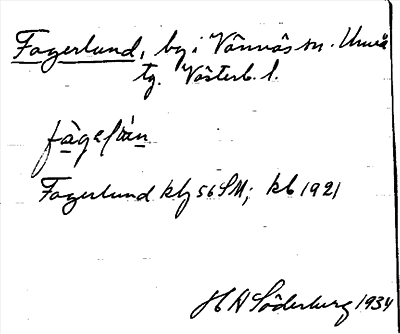 Fagerlund, by i Vännäs sn. Umeå
tg. Västerb. l.
Fagerlund klj 56 SM; kb 1921
H N Söderburg 1934